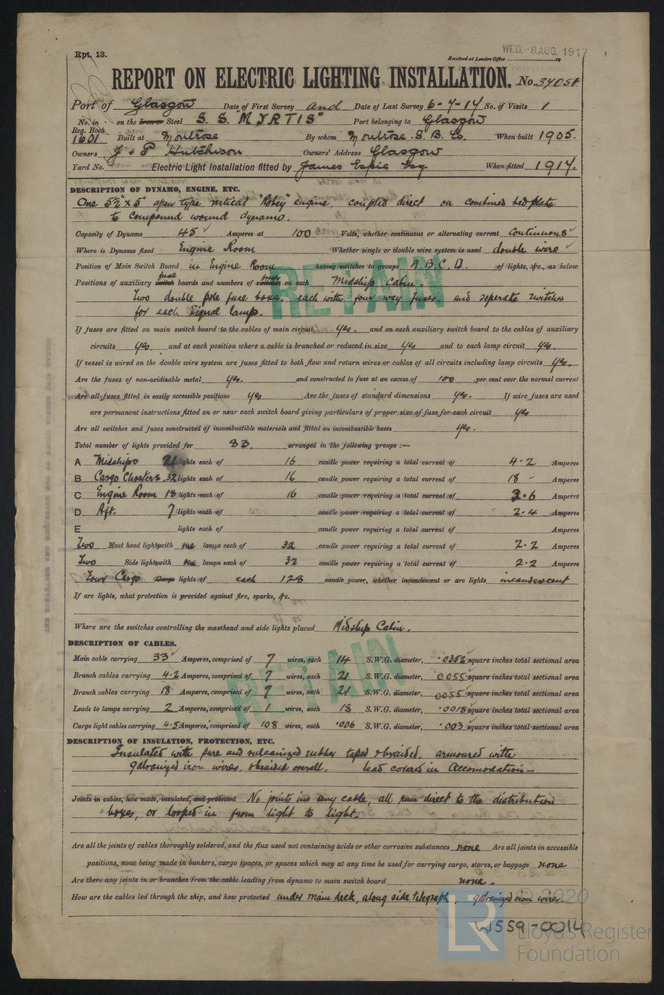 Rpt. 13.
WED. -8 AUG. 1917
Received at London Office
REPORT ON ELECTRIC LIGHTING INSTALLATION. No. 34058
Port of Glasgow Date of First Survey and Date of Last Survey 6-7-14 No. of Visits 1
No. in Reg. Book 1601 on the Iron or Steel S.S. MYRTIS Port belonging to Glasgow
Built at Montrose By whom Montrose S. B. Co. When built 1905.
Owners J & P Hutchison Owners' Address Glasgow
Yard No. Electric Light Installation fitted by James Espie Esq When fitted 1914.
DESCRIPTION OF DYNAMO, ENGINE, ETC.
One 5½ x 5" open type vertical "Robey" engine, coupled direct on combined bed plate
to compound wound dynamo.
Capacity of Dynamo 45 Amperes at 100 Volts, whether continuous or alternating current continuous
Where is Dynamo fixed Engine Room Whether single or double wire system is used double wire
Position of Main Switch Board in Engine Room having switches to groups A.B.C.D. of lights, &c., as below
Positions of auxiliary fuse boards and numbers of on each Midship Cabin.
Two double pole fuse boxes, each with four way fuses, and seperate switches
for each signal lamp.
RETAIN
If fuses are fitted on main switch board to the cables of main circuit yes. and on each auxiliary switch board to the cables of auxiliary
circuits yes and at each position where a cable is branched or reduced in size yes and to each lamp circuit yes.
If vessel is wired on the double wire system are fuses fitted to both flow and return wires or cables of all circuits including lamp circuits yes.
Are the fuses of non-oxidizable metal yes. and constructed to fuse at an excess of 100 per cent over the normal current
Are all fuses fitted in easily accessible positions yes Are the fuses of standard dimensions yes. If wire fuses are used
are permanent instructions fitted on or near each switch board giving particulars of proper size of fuse for each circuit yes
Are all switches and fuses constructed of incombustible materials and fitted on incombustible bases yes.
Total number of lights provided for 83 arranged in the following groups :—
A Midships 21 lights each of 16 candle power requiring a total current of 4.2 Amperes
B Cargo Clusters 32 lights each of 16 candle power requiring a total current of 18 Amperes
C Engine Room 18 lights each of 16 candle power requiring a total current of 3.6 Amperes
D Aft. 7 lights each of candle power requiring a total current of 2.4 Amperes
E lights each of candle power requiring a total current of Amperes
Two Mast head light with one lamps each of 32 candle power requiring a total current of 2.2 Amperes
Two Side light with one lamps each of 32 candle power requiring a total current of 2.2 Amperes
Four Cargo lights of each 128 candle power, whether incandescent or arc lights incandescent
If arc lights, what protection is provided against fire, sparks, &c.
Where are the switches controlling the masthead and side lights placed Midship Cabin.
DESCRIPTION OF CABLES.
Main cable carrying 33 Amperes, comprised of 7 wires, each 14 S.W.G. diameter, .0352 square inches total sectional area
Branch cables carrying 4.2 Amperes, comprised of 7 wires, each 21 S.W.G. diameter, .0055 square inches total sectional area
Branch cables carrying 18 Amperes, comprised of 7 wires, each 21 S.W.G. diameter, .0055 square inches total sectional area
Leads to lamps carrying 2 Amperes, comprised of 1 wires, each 18 S.W.G. diameter, .0018 square inches total sectional area
Cargo light cables carrying 4.5 Amperes, comprised of 108 wires, each .006 S.W.G. diameter, .003 square inches total sectional area
RETAIN
DESCRIPTION OF INSULATION, PROTECTION, ETC.
Insulated with pure and vulcanized rubber taped & braided. armoured with
galvanized iron wires, & braided overall. lead covered in Accomodation—
Joints in cables, how made, insulated, and protected No joints in any cable, all run direct to the distribution
boxes, or looped in from light to light.
Are all the joints of cables thoroughly soldered, and the flux used not containing acids or other corrosive substances none Are all joints in accessible
positions, none being made in bunkers, cargo spaces, or spaces which may at any time be used for carrying cargo, stores, or baggage none
Are there any joints in or branches from the cable leading from dynamo to main switch board none.
How are the cables led through the ship, and how protected under main deck, along side telegraph, galvanized iron wire
© 2020
LR
Lloyd's Register
Foundation
W559-0014